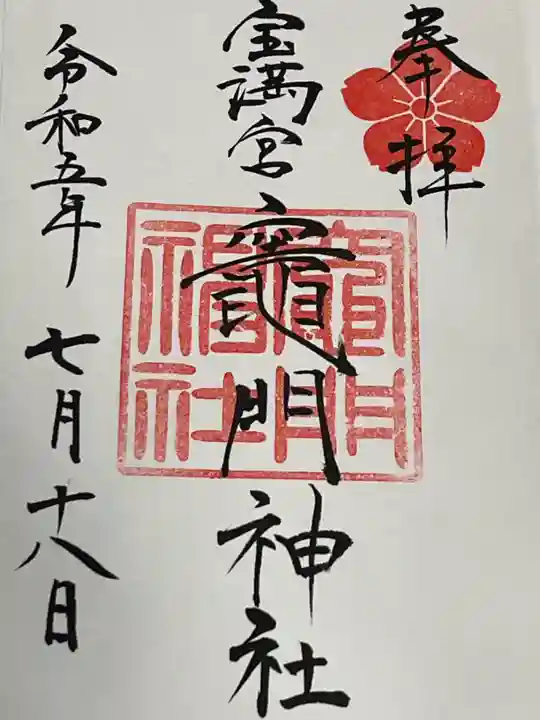 奉拝
宝満宮
竈門神社
令和五年
七月十八日